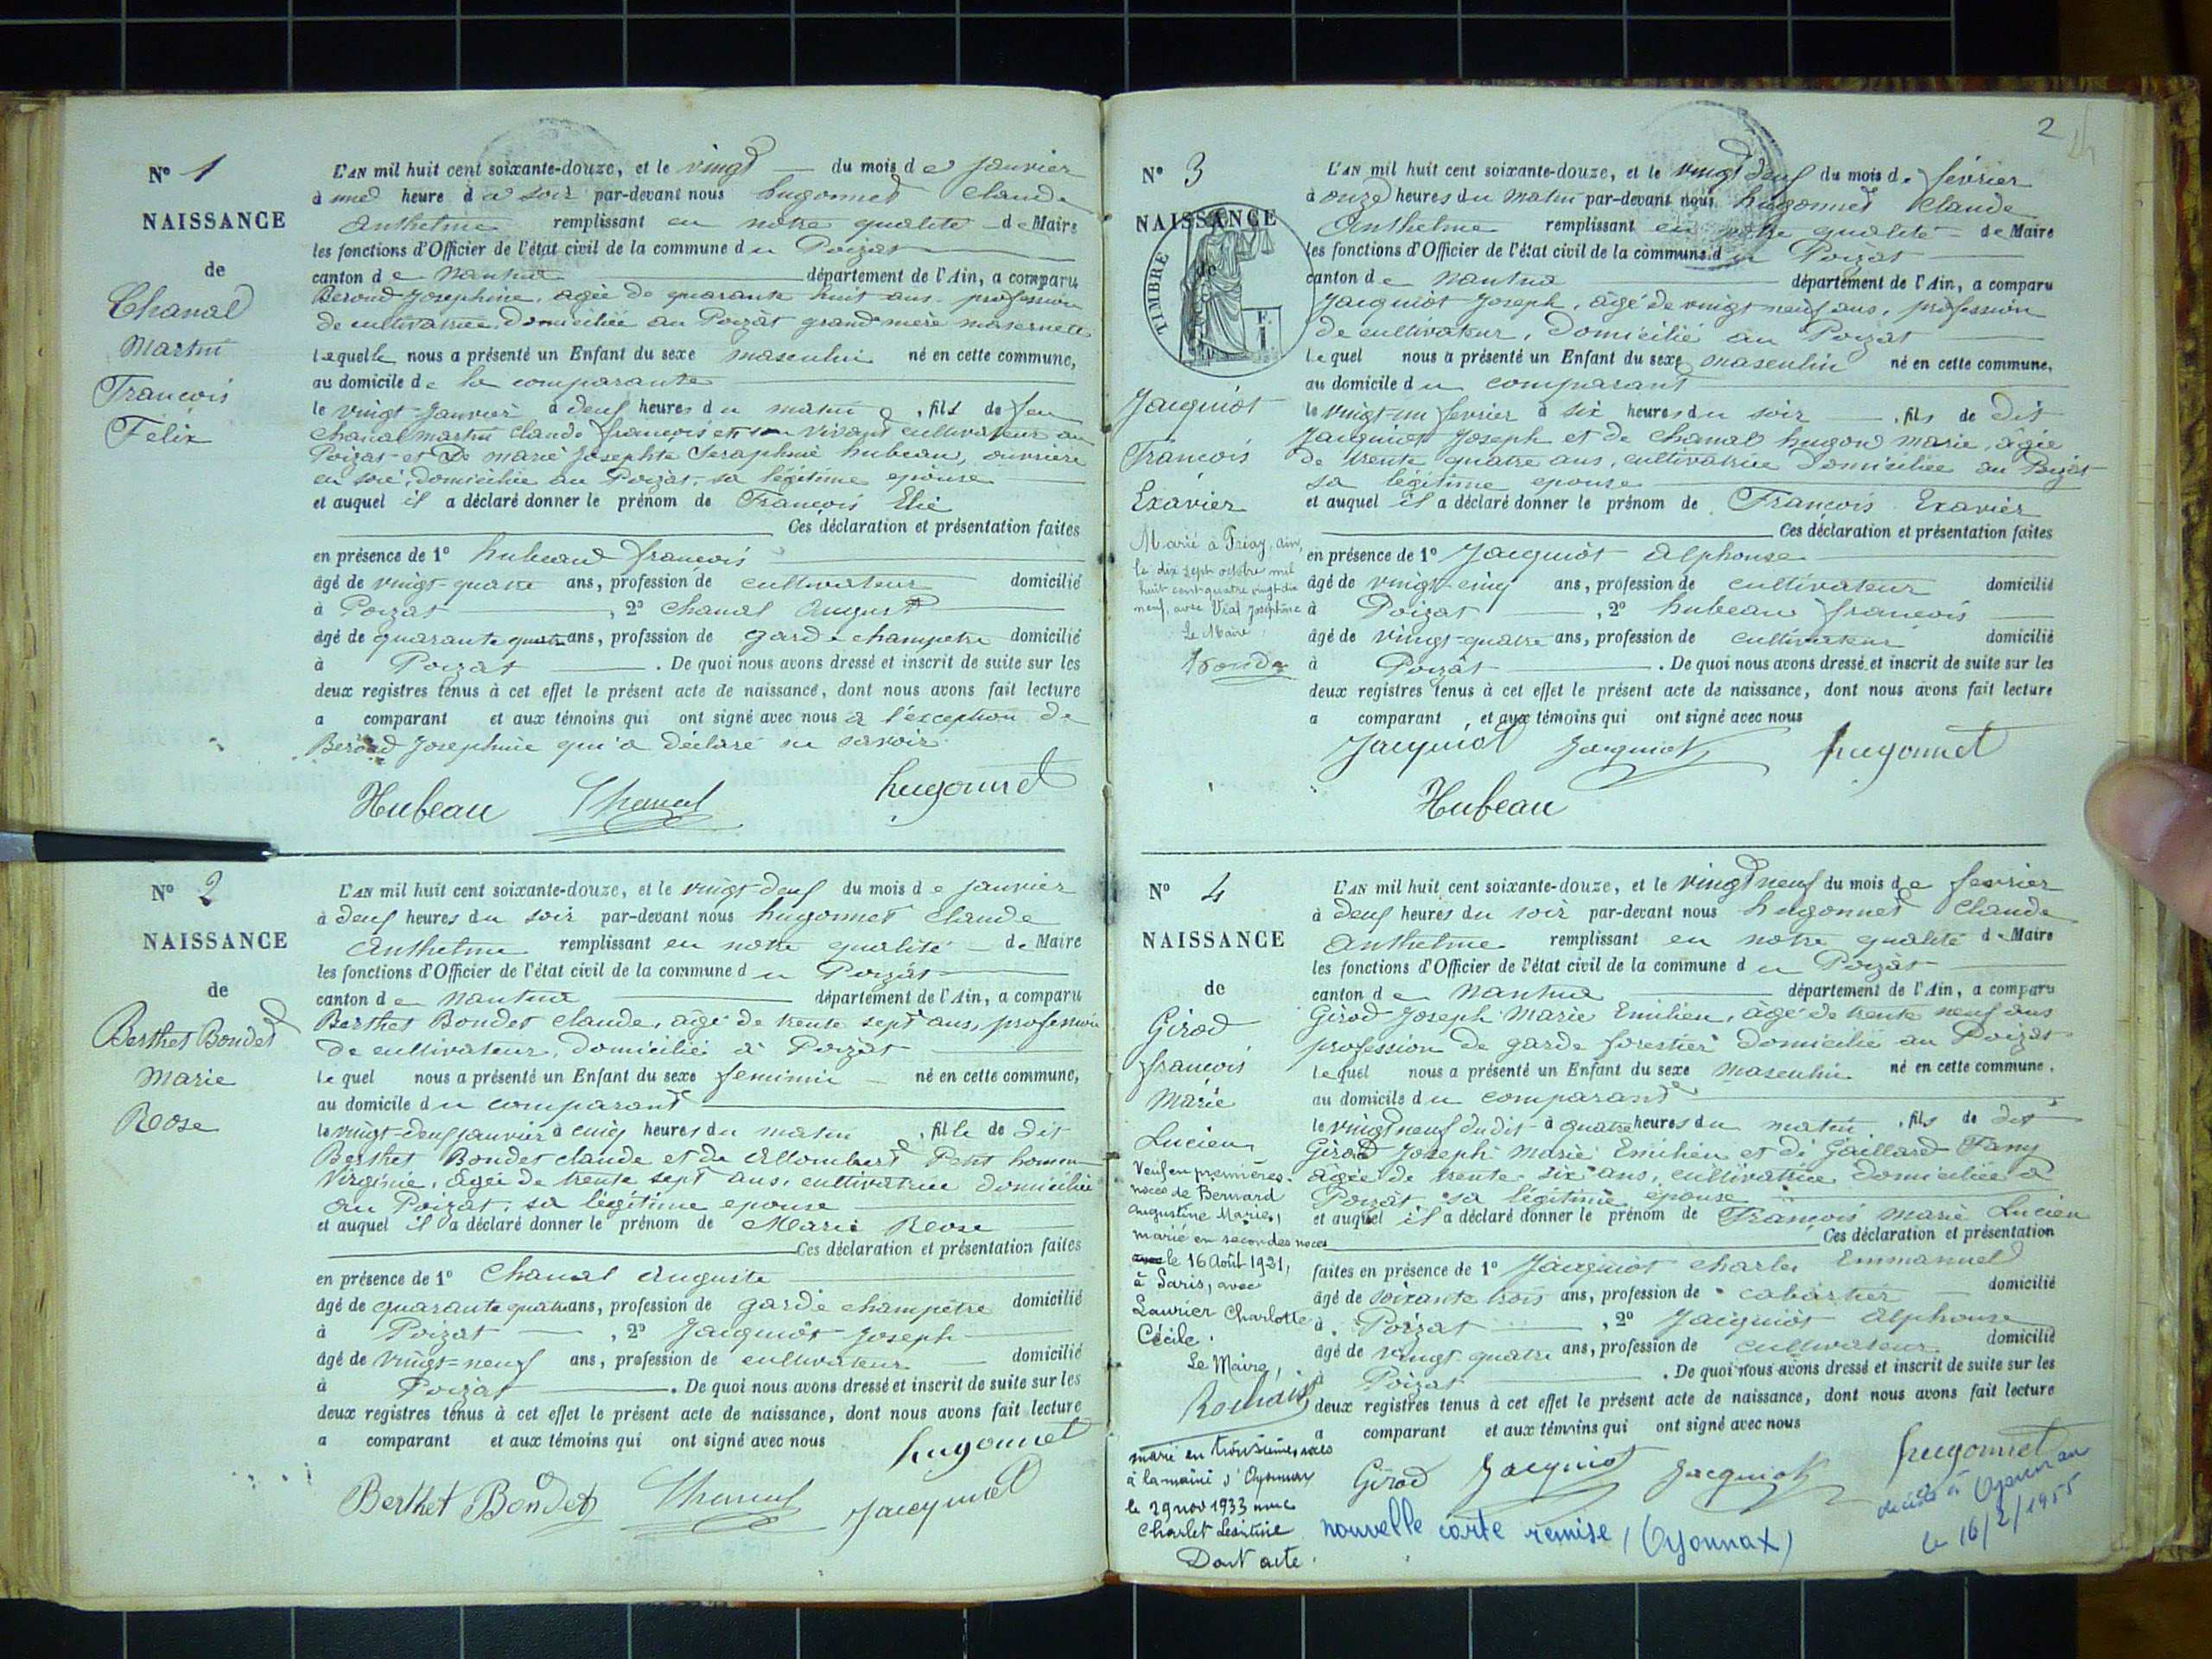 N° 1
NAISSANCE
de
Chanal
Martin
François
Félix
L'AN mil huit cent soixante-douze, et le vingt du mois de Janvier
à une heure du soir par-devant nous hugonnet Claude
Anthelme remplissant en notre qualité de Maire
les fonctions d'Officier de l'état civil de la commune du Poizat
canton de Nantua département de l'Ain, a comparu
Beroud Josephine, agée de quarante huit ans profession
de cultivatrice, domiciliée au Poizât grand mère maternelle
laquelle nous a présenté un Enfant du sexe masculin né en cette commune,
au domicile de la comparante
le vingt Janvier à deuf heures du matin, fils de feu
Chanal martin Claude françois en son vivant cultivateur au
Poizat et de marie Josephte Seraphine hubeau, ouvrière
en soie, domiciliée au Poizat, sa légitime epouse
et auquel il a déclaré donner le prénom de François Elie
Ces déclaration et présentation faites
en présence de 1° hubeaud françois
âgé de vingt-quatre ans, profession de cultivateur domicilié
à Poizat, 2° Chanal August
âgé de quarante quatre ans, profession de garde champetre domicilié
à Poizat. De quoi nous avons dressé et inscrit de suite sur les
deux registres tenus à cet effet le présent acte de naissance, dont nous avons fait lecture
a comparant et aux témoins qui ont signé avec nous a l'exception de
Beroud Josephine qui a déclaré ne savoir
Hubeau Chanal hugonnet
N° 2
NAISSANCE
de
Berthet Bondet
Marie
Rose
L'AN mil huit cent soixante-douze, et le vingt-deuf du mois de Janvier
à deuf heures du soir par-devant nous hugonnet Claude
Anthelme remplissant en notre qualité de Maire
les fonctions d'Officier de l'état civil de la commune du Poizât
canton de Nantua département de l'Ain, a comparu
Berthet Bondet Claude, âgé de trente sept ans, profession
de cultivateur, domicilié à Poizât
lequel nous a présenté un Enfant du sexe feminin né en cette commune,
au domicile du comparant
le vingt-deuf janvier à cinq heures du matin, fille de dit
Berthet Bondet Claude et de Allombert Petit homme
Virginie, âgée de trente sept ans, cultivatrice domiciliée
au Poizat, sa légitime epouse
et auquel il a déclaré donner le prénom de Marie Rose
Ces déclaration et présentation faites
en présence de 1° Chanal Auguste
âgé de quarante quatre ans, profession de garde champêtre domicilié
à Poizat, 2° Jacquiot Joseph
âgé de vingt-neuf ans, profession de cultivateur domicilié
à Poizat. De quoi nous avons dressé et inscrit de suite sur les
deux registres tenus à cet effet le présent acte de naissance, dont nous avons fait lecture
a comparant et aux témoins qui ont signé avec nous
hugonnet
Berthet Bondet Chanal Jacquiot
2
N° 3
NAISSANCE
de
TIMBRE
Jacquiot
François
Exavier
Marié à Priay, ain,
le dix sept octobre mil
huit cent quatre vingt dix
neuf, avec Vial Joséphine
Le Maire,
L'AN mil huit cent soixante-douze, et le vingt deuf du mois de février
à onze heures du matin par-devant nous hugonnet Claude
Anthelme remplissant en notre qualité de Maire
les fonctions d'Officier de l'état civil de la commune du Poizât
canton de Nantua département de l'Ain, a comparu
Jacquiot Joseph, âgé de vingt neuf ans, profession
de cultivateur, domicilié au Poizat
lequel nous a présenté un Enfant du sexe masculin né en cette commune,
au domicile du comparant
le vingt-un fevrier à six heures du soir, fils de dit
Jacquiot Joseph et de Chanal hugon marie, âgée
de trente quatre ans, cultivatrice domiciliée au Poizat
sa légitime epouse
et auquel il a déclaré donner le prénom de François Exavier
Ces déclaration et présentation faites
en présence de 1° Jacquiot Alphonse
âgé de vingt-cinq ans, profession de cultivateur domicilié
à Poizat, 2° hubeau françois
âgé de vingt-quatre ans, profession de cultivateur domicilié
à Poizât. De quoi nous avons dressé et inscrit de suite sur les
deux registres tenus à cet effet le présent acte de naissance, dont nous avons fait lecture
a comparant, et aux témoins qui ont signé avec nous
Jacquiot Jacquiot hugonnet
Hubeau
N° 4
NAISSANCE
de
Girod
françois
Marie
Lucien
Veuf en premières
noces de Bernard
Augustine Marie,
marié en secondes noces
le 16 Août 1921,
à Paris, avec
Laurier Charlotte
Cécile.
Le Maire,
marié en troisièmes noces
à la mairie d'Oyonnax
le 29 nov 1933 avec
Charlet
Dont acte.
L'AN mil huit cent soixante-douze, et le vingt neuf du mois de fevrier
à deuf heures du soir par-devant nous hugonnet Claude
Anthelme remplissant en notre qualité de Maire
les fonctions d'Officier de l'état civil de la commune du Poizât
canton de Nantua département de l'Ain, a comparu
Girod Joseph Marie Emilien, âgé de trente neuf ans
profession de garde forestier domicilié au Poizat
lequel nous a présenté un Enfant du sexe masculin né en cette commune,
au domicile du comparant
le vingt neuf dudit à quatre heures du matin, fils de dit
Girod Joseph Marie Emilien et de Gaillard Fany
âgée de trente-six ans, cultivatrice domiciliée à
Poizât sa légitime epouse
et auquel il a déclaré donner le prénom de François Marie Lucien
Ces déclaration et présentation
faites en présence de 1° Jacquiot Charles Emmanuel
âgé de soixante trois ans, profession de cabartier domicilié
à Poizat, 2° Jacquiot Alphonse
âgé de vingt quatre ans, profession de cultivateur domicilié
à Poizat. De quoi nous avons dressé et inscrit de suite sur les
deux registres tenus à cet effet le présent acte de naissance, dont nous avons fait lecture
a comparant et aux témoins qui ont signé avec nous
Girod Jacquiot Jacquiot hugonnet
nouvelle carte remise (Oyonnax)
décédé à Oyonnax
le 16/2/1955